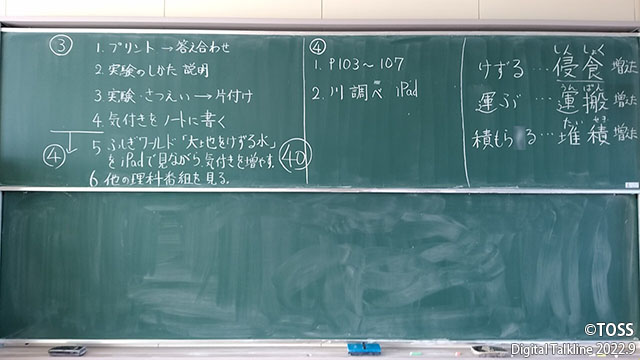 ③
1. プリント→答え合わせ
2. 実験のしかた 説明
3. 実験・さつえい→片付け
4. 気付きをノートに書く
④
5 ふしぎワールド「大地をけずる水」
をiPadで見ながら気付きを増やす。
㊵
6 他の理科番組を見る。
④
1. P103〜107
2. 川調べ iPad
しん しょく
けずる…侵食 増えた
うん ぱん
運ぶ…運搬 増えた
たい せき
積もる…堆積 増えた
©TOSS
Digital Talkline 2022.9